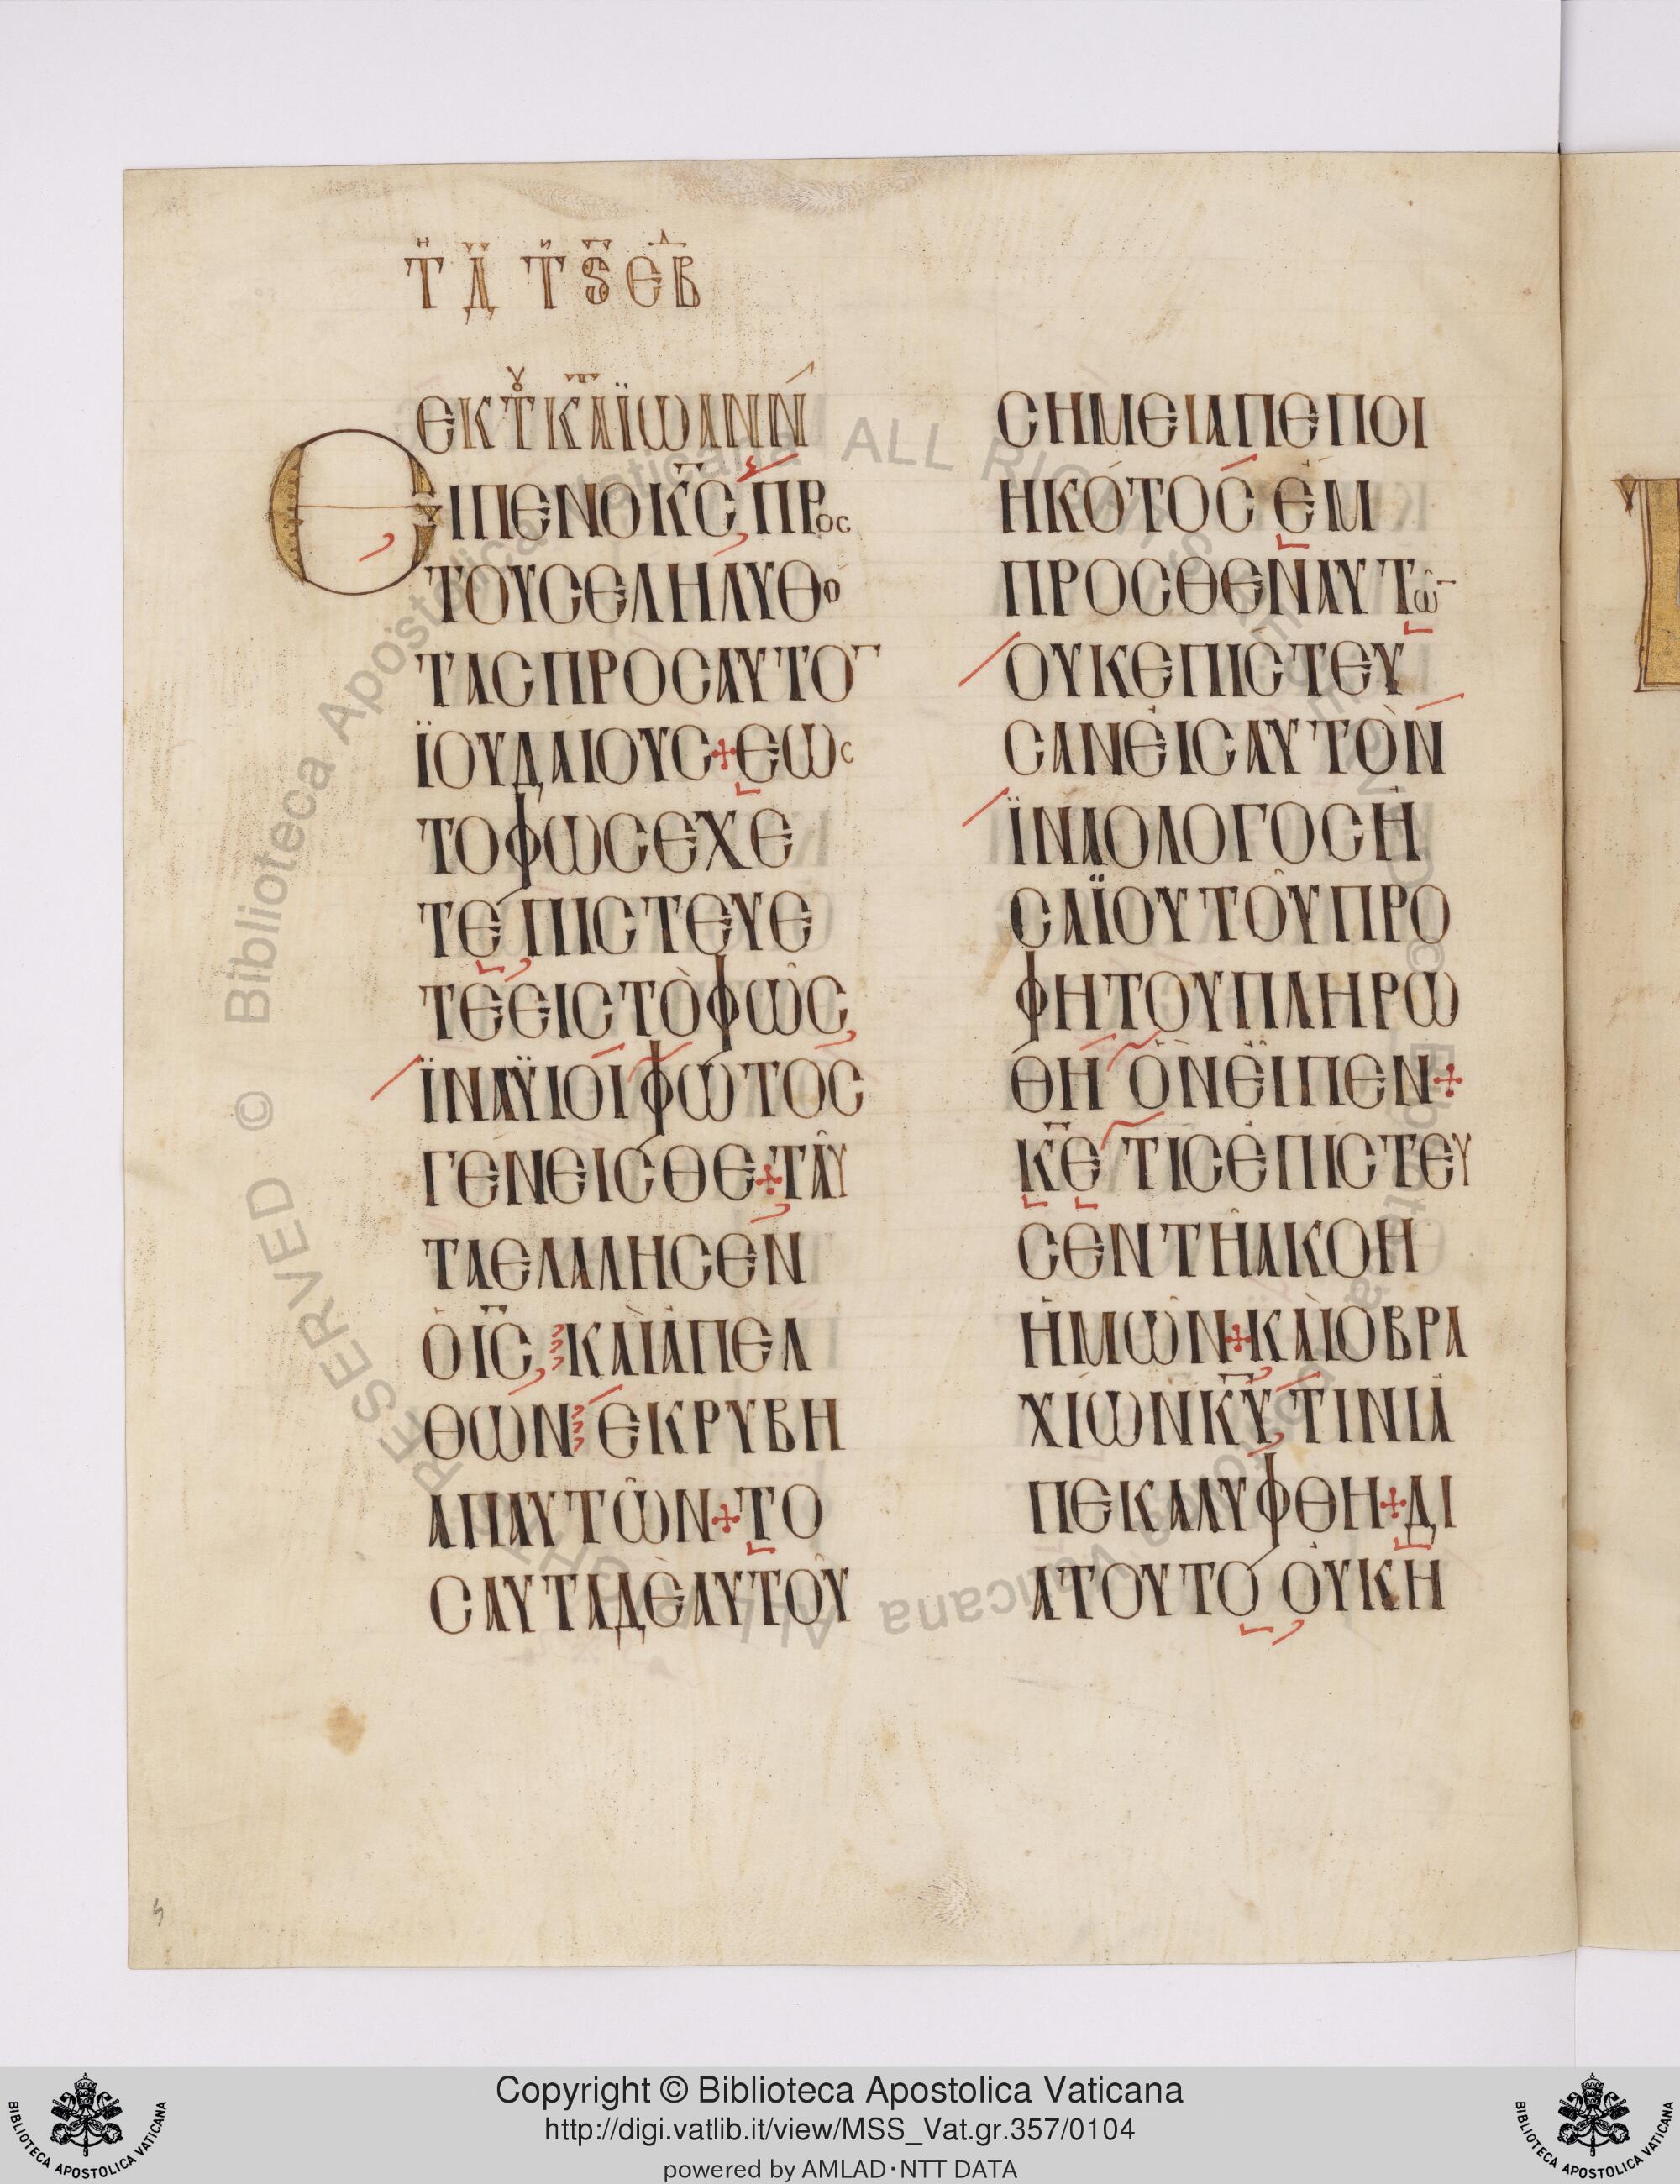 Τῌ Δ Τῆς ϛ ἑβδ
ΕΚ ΤΟΥ ΚΑΤΑ ΪΩΑΝΝ
ΕΙΠΕΝ Ο ΚϹ, ΠΡΟϹ
ΤΟΥϹ ΕΛΗΛΥΘΟ
ΤΑϹ ΠΡΟϹ ΑΥΤΟ
ΪΟΥΔΑΙΟΥϹ + ΕΩϹ
ΤΟ ΦΩϹ ΕΧΕ
ΤΕ ΠΙϹΤΕΥΕ
ΤΕ ΕΙϹ ΤΟ ΦΩϹ,
ΪΝΑ ΥΪΟΙ ΦΩΤΟϹ
ΓΕΝΕΙϹΘΕ + ΤΑΥ
ΤΑ ΕΛΑΛΗϹΕΝ
Ο ΙϹ, ΚΑΙ ΑΠΕΛ
ΘΩΝ ΕΚΡΥΒΗ
ΑΠ ΑΥΤΩΝ + ΤΟ
ϹΑΥΤΑ ΔΕ ΑΥΤΟΥ
ϹΗΜΕΙΑ ΠΕΠΟΙ
ΗΚΟΤΟϹ ΕΜ
ΠΡΟϹΘΕΝ ΑΥΤΩ
ΟΥΚ ΕΠΙϹΤΕΥ
ϹΑΝ ΕΙϹ ΑΥΤΟΝ
ΪΝΑ Ο ΛΟΓΟϹ Η
ϹΑΪΟΥ ΤΟΥ ΠΡΟ
ΦΗΤΟΥ ΠΛΗΡΩ
ΘΗ ΟΝ ΕΙΠΕΝ +
ΚΕ ΤΙϹ ΕΠΙϹΤΕΥ
ϹΕΝ ΤΗ ΑΚΟΗ
ΗΜΩΝ + ΚΑΙ Ο ΒΡΑ
ΧΙΩΝ ΚΥ, ΤΙΝΙ Α
ΠΕΚΑΛΥΦΘΗ + ΔΙ
Α ΤΟΥΤΟ ΟΥΚ Η
Copyright © Biblioteca Apostolica Vaticana
http://digi.vatlib.it/view/MSS_Vat.gr.357/0104
powered by AMLAD·NTT DATA
BIBLIOTECA APOSTOLICA VATICANA
BIBLIOTECA APOSTOLICA VATICANA